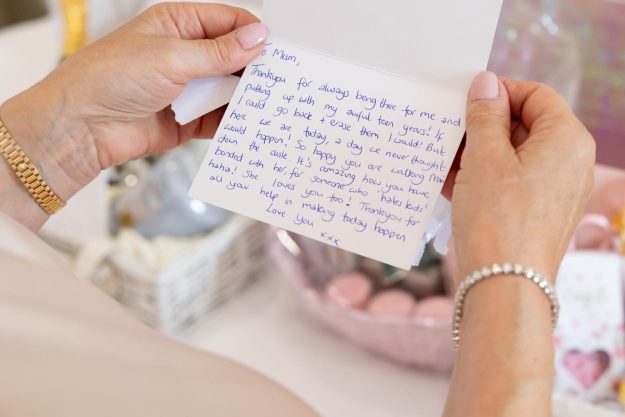 To Mum,
Thankyou for always being there for me and
putting up with my awful teen years! If
I could go back + erase them I would! But
here we are today, a day we never thought
would happen! So happy you are walking
down the aisle. It's amazing how you have
bonded with her, for someone who 'hates kids'
haha! She loves you too! Thankyou for
all your help in making today happen
Love you xxx